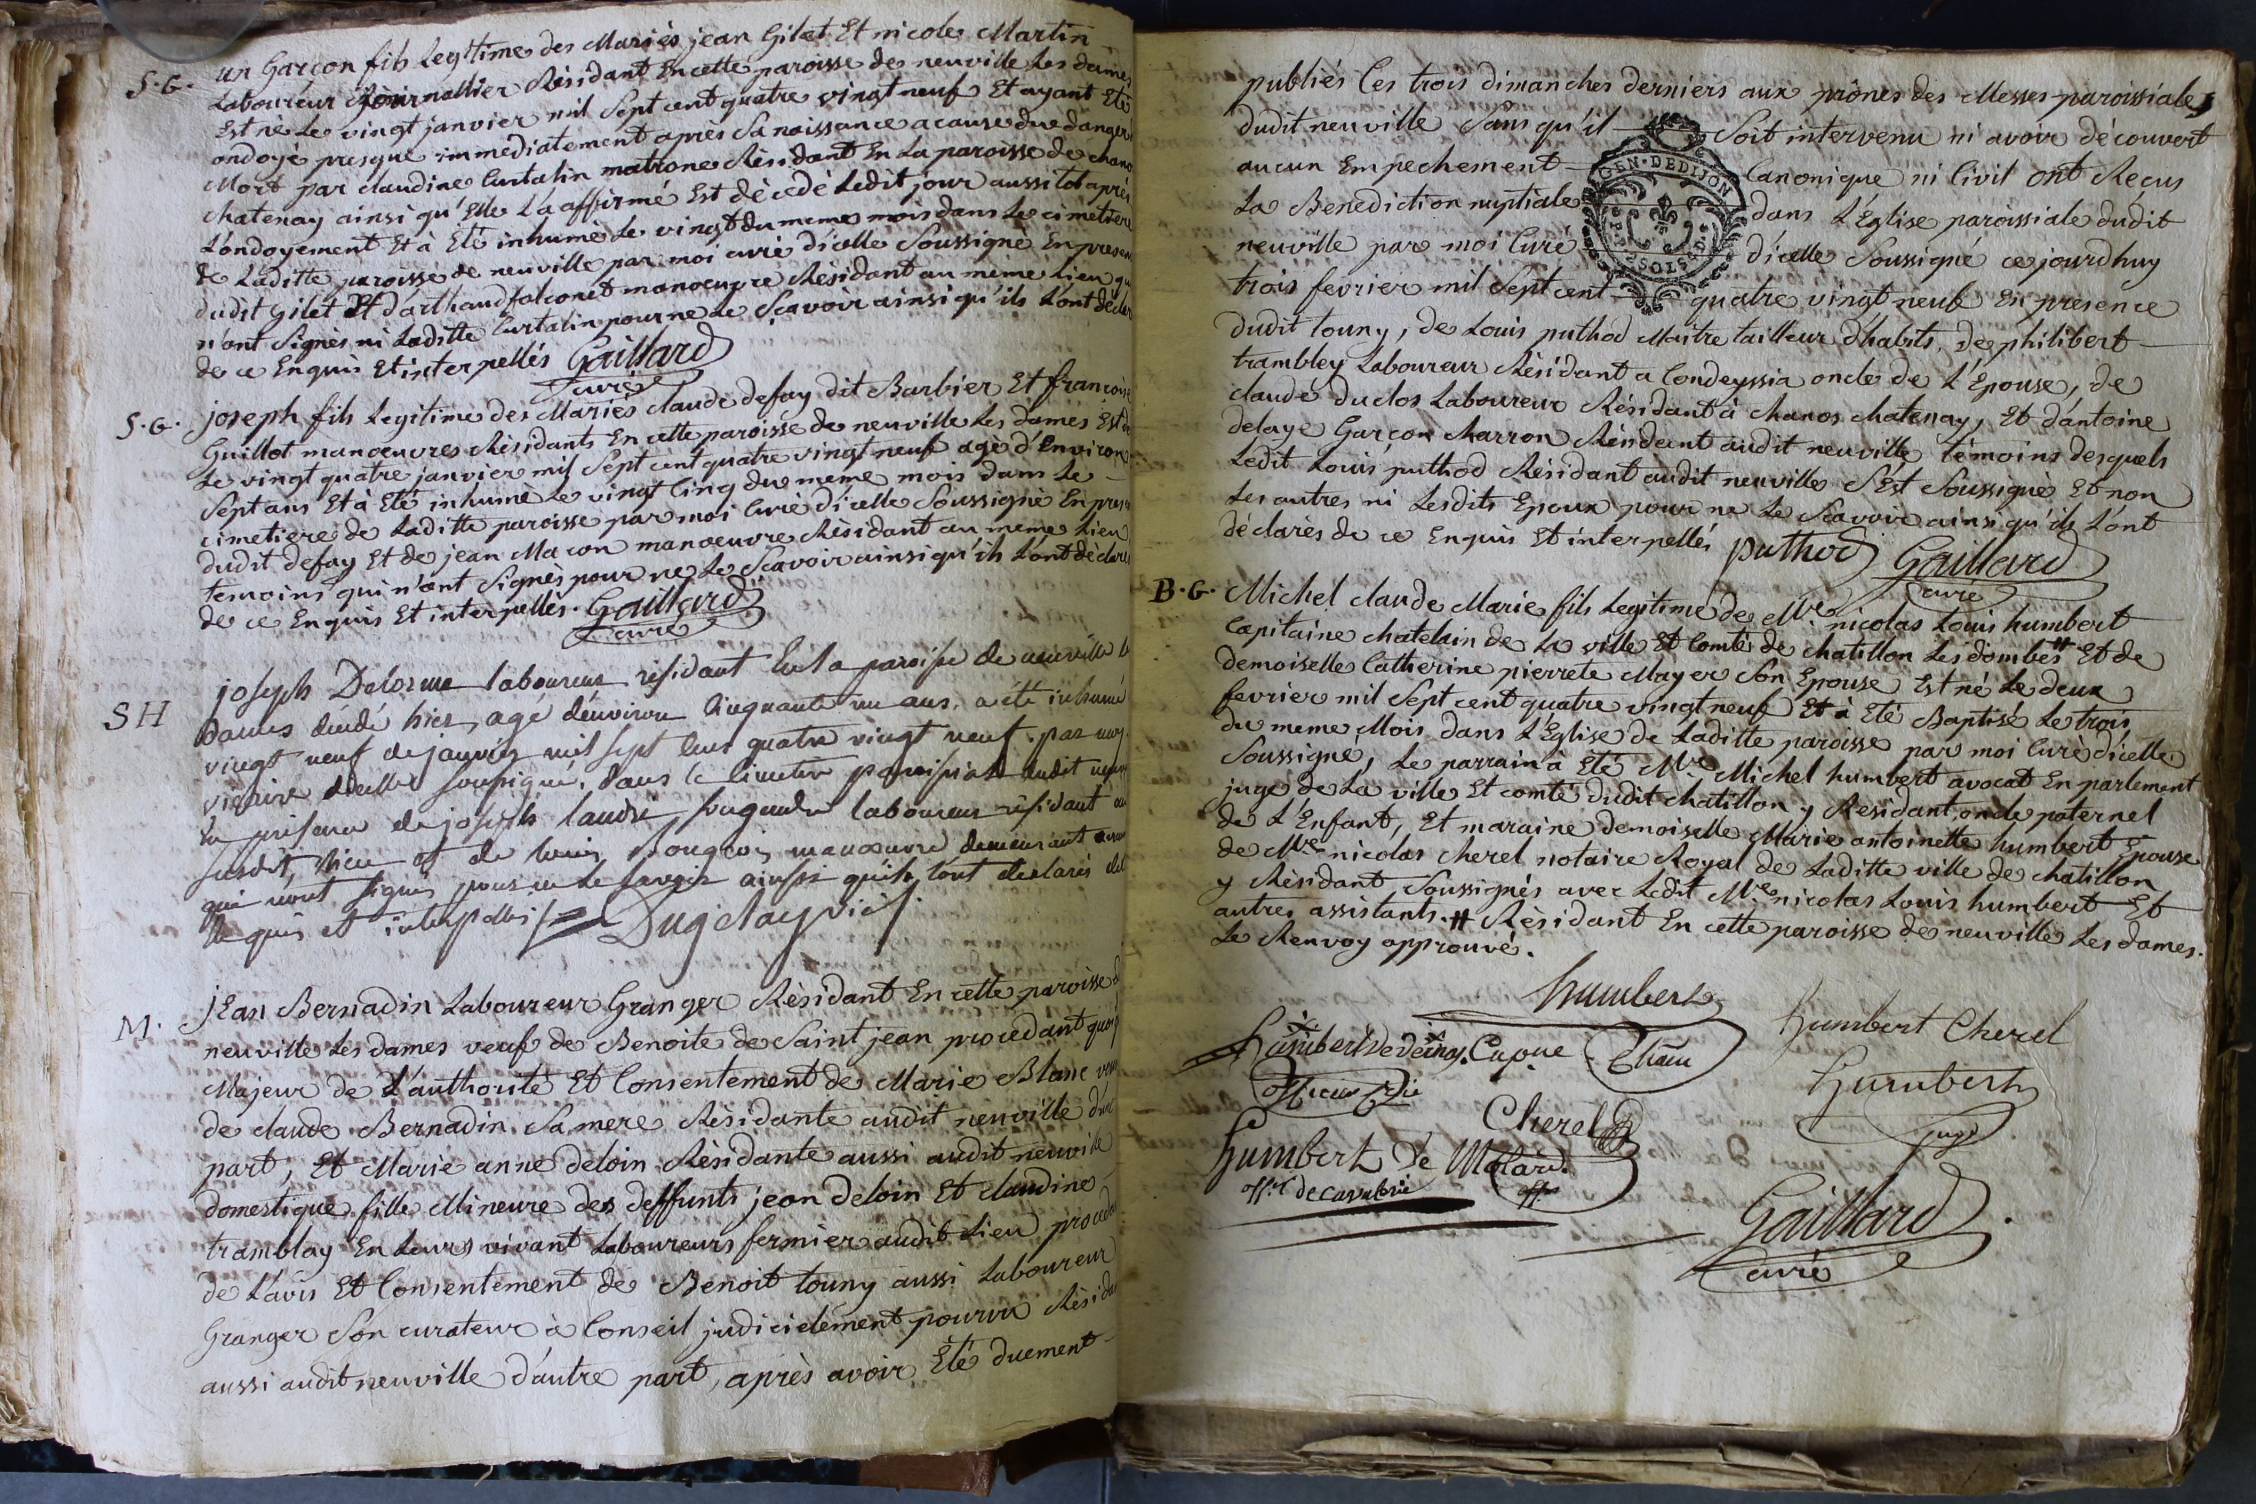 S.G. un Garçon fils Legitime des Mariés jean Gilet Et nicole Martin
Laboureur journallier Résidant En cette paroisse de neuville Les dames
Est né Le vingt janvier mil Sept cent quatre vingt neuf Et ayant Eté
ondoyé presque immediatement après Sa naissance a cause du danger
Mort par claudine Curtalin matrone Résidant En La paroisse de chano
chatenay ainsi qu'Elle L'a affirmé Est décedé Ledit jour aussitot après
L'ondoyement Et à Eté inhumé Le vingt du meme mois dans Le cimetiere
de Laditte paroisse de neuville par moi curé dicelle Soussigné En presen
dudit Gilet Et d'arthaud falconet manoeuvre Résidant au meme Lieu qui
n'ont Signés ni Laditte Curtalin pour ne Le Scavoir ainsi qu'ils L'ont declar
de ce Enquis Et interpellés Gaillard
curé
S.G. joseph fils Legitime des Mariés claude defay dit Barbier Et françoise
Guillot manoeuvres Résidants En cette paroisse de neuville Les dames Est
Le vingt quatre janvier mil Sept cent quatre vingt neuf agé d'Environ
Sept ans Et à Eté inhumé Le vingt Cinq du meme mois dans Le
cimetiere de Laditte paroisse par moi Curé dicelle Soussigné En prese
dudit defay Et de jean Macon manoeuvre Résidant au meme Lieu
temoins qui n'ont Signés pour ne Le Scavoir ainsi qu'ils L'ont déclaré
de ce Enquis Et interpellés. Gaillard
curé
SH joseph Delorme laboureur résidant la paroisse de neuville l
dames décédé hier, agé d'environ Cinquante un ans, a été inhumé
vingt neuf de janvier mil sept cens quatre vingt neuf. par moy
vicaire dicelle soussigné, dans le cimetiere paroissial dudit neuv
En présence de joseph laboureur résidant au
susdit lieu et de louis manoeuvre demeurant
qui n'ont signés pour ne le savoir ainsi qu'ils l'ont declarés de
enquis et interpellés Dugclay vic.
M. jEan Bernadin Laboureur Granger Résidant En cette paroisse d
neuville Les dames veuf de Benoite de Saint jean procédant quoiq
Majeur de L'authorité Et Consentement de Marie Blanc veuv
de claude Bernadin Sa mere Résidante audit neuville d'une
part, Et Marie anne deloin Résidante aussi audit neuville
domestique fille Mineure des deffunts jean deloin Et claudine
tramblay En Leurs vivant Laboureurs fermier audit Lieu procéda
de L'avis Et Consentement de Benoit touny aussi Laboureur
Granger Son curateur à Conseil judicielement pourvu Résida
aussi audit neuville d'autre part, après avoir Eté duement
publiés Ces trois dimanches derniers aux prônes des Messes paroissiales
dudit neuville Sans qu'il Soit intervenu ni avoir découvert
aucun Empechement Canonique ni Civil ont Reçus
La Benediction nuptiale dans L'Eglise paroissiale dudit
neuville par moi Curé d'icelle Soussigné ce jourdhuy
trois fevrier mil Sept cent quatre vingt neuf En présence
GEN. DE DIJON
dudit touny, de Louis puthod Maitre tailleur d'habits, de philibert
trambley Laboureur Résidant a Condeyssia oncle de L'Epouse, de
claude duclos Laboureur Résidant à chanos chatenay, Et d'antoine
delaye Garçon charron Résidant audit neuville témoins desquels
Ledit Louis puthod Résidant audit neuville S'Est Soussigné Et non
Les autres ni Lesdits Epoux pour ne Le Scavoir ainsi qu'ils L'ont
déclarés de ce Enquis Et interpellés puthod Gaillard
curé
B.G. Michel claude Marie fils Legitime de Mre nicolas Louis humbert
capitaine chatelain de La ville Et Comté de chatillon Les dombes # Et de
demoiselle Catherine pierrete Mayer Son Epouse Est né Le deux
fevrier mil Sept cent quatre vingt neuf Et à Eté Baptisé Le trois
du meme Mois dans L'Eglise de Laditte paroisse par moi Curé dicelle
Soussigné, Le parrain à Eté Mre Michel humbert avocat En parlement
juge de La ville Et comté dudit chatillon y Résidant, oncle paternel
de L'Enfant, Et maraine demoiselle Marie antoinette humbert Epouse
de Mre nicolas cherel notaire Royal de Laditte ville de chatillon
y Résidant Soussignés avec Ledit Mre nicolas Louis humbert Et
autres assistants. # Résidant En cette paroisse de neuville Les dames.
Le Renvoy approuvé.
humbert
humbert Cherel
humbert
juge
Cherel
humbert De Molard
offer de cavalerie
Gaillard
curé